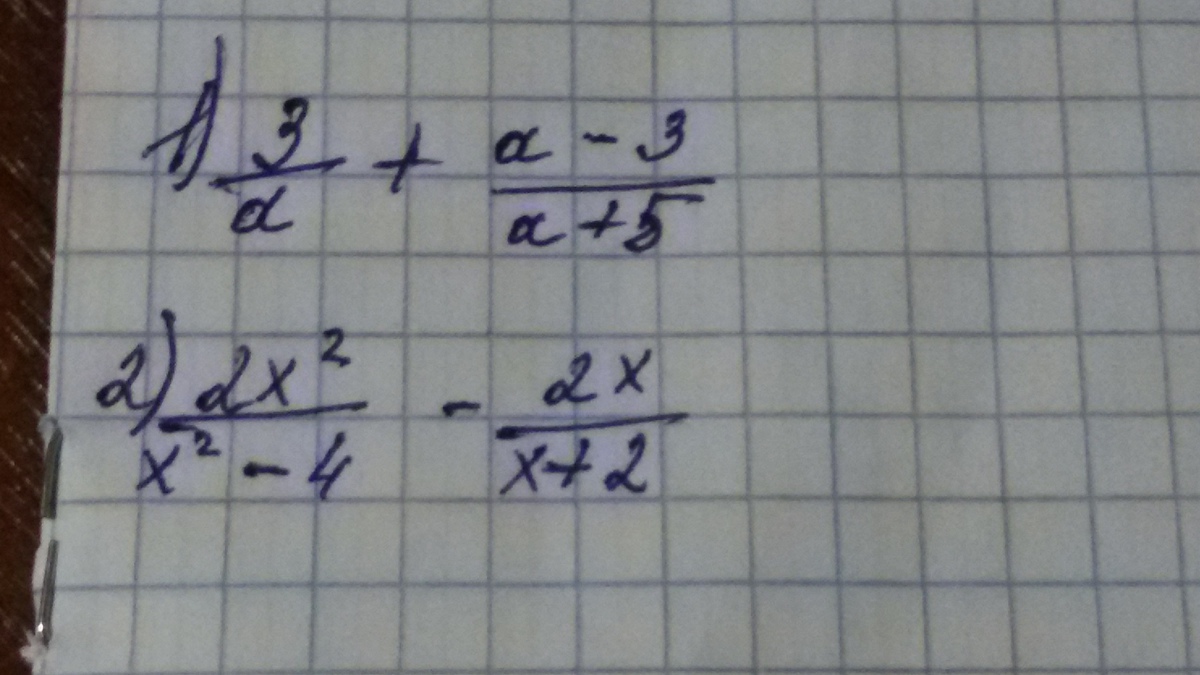 1) 3/a + (a - 3)/(a + 5)
2) 2x²/(x² - 4) - 2x/(x + 2)